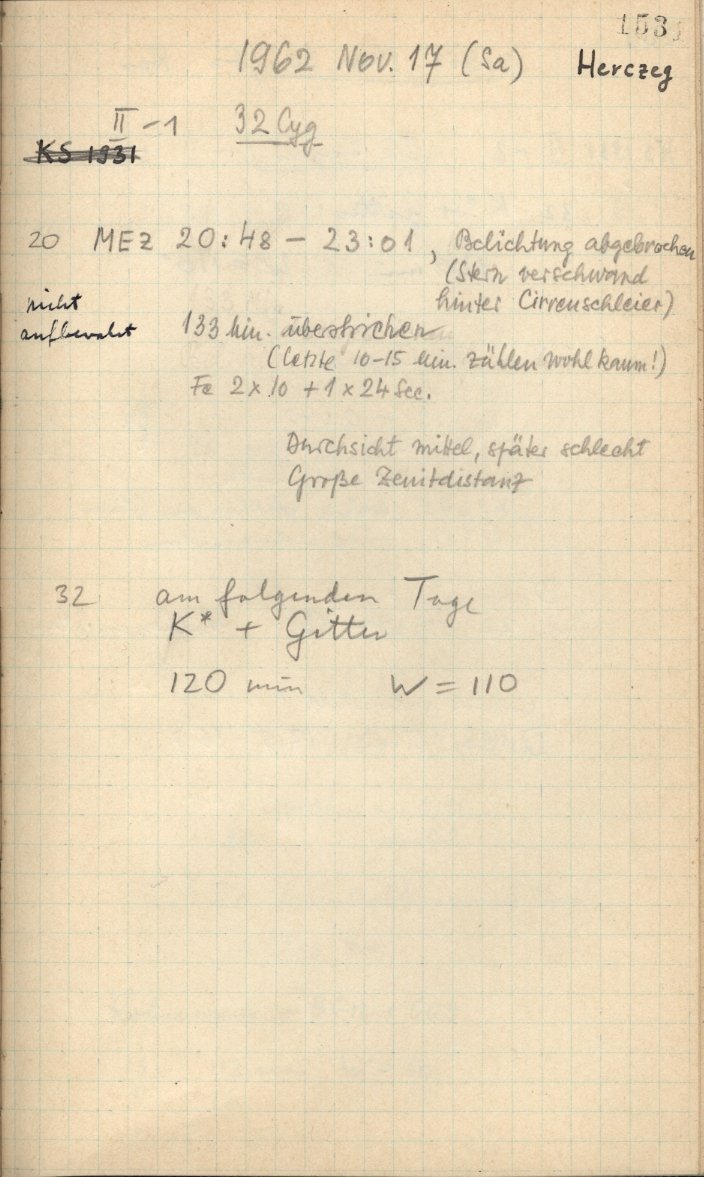 153
1962 Nov. 17 (Sa) Herczeg
II-1 32 Cyg
KS 1931
20 MEZ 20:48 – 23:01, Belichtung abgebrochen
(Stern verschwand
hinter Cirrenschleier)
nicht
aufbewahrt
133 Min. überstrichen
(letzte 10-15 Min. zählen wohl kaum!)
Fe 2 x 10 + 1 x 24 Sec.
Durchsicht mittel, später schlecht
Große Zenitdistanz
32 am folgenden Tage
K* + Gitter
120 min W = 110